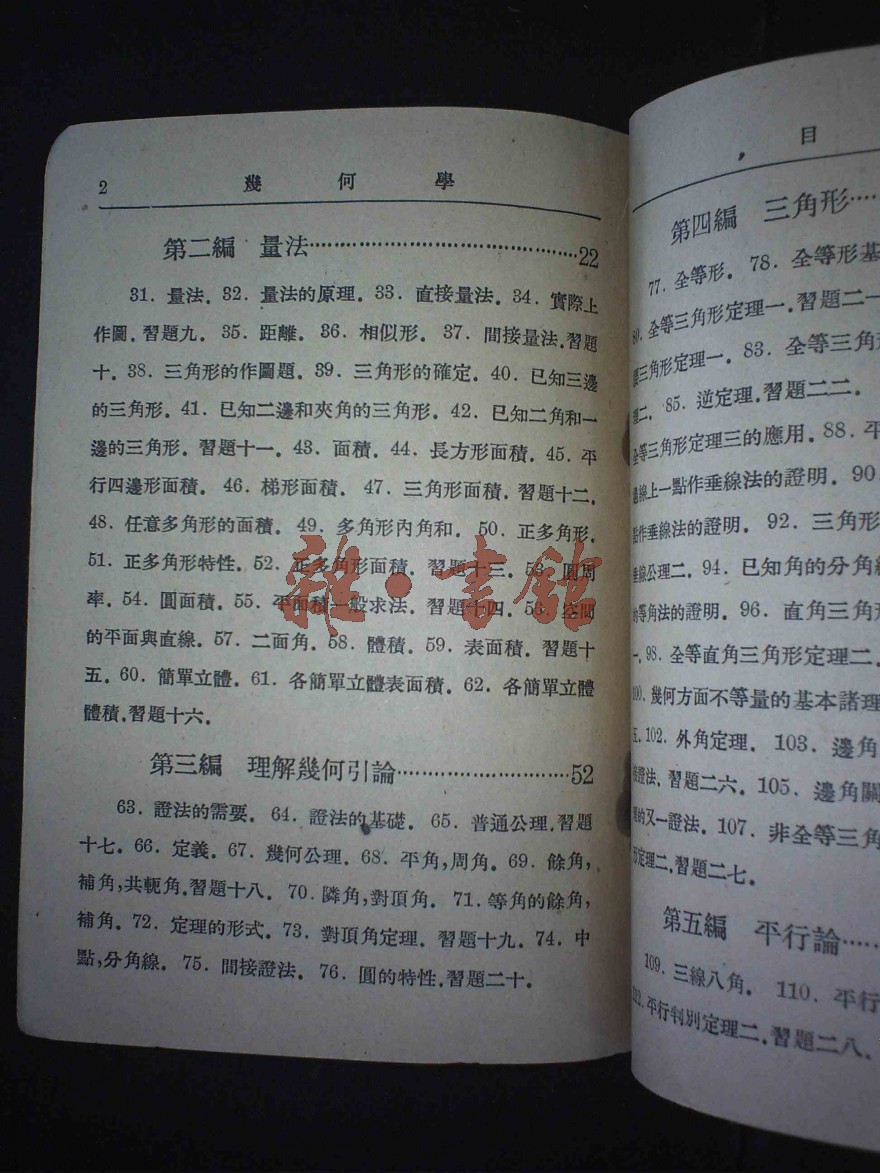 2 幾何學
第二編 量法……………………………………22
31. 量法. 32. 量法的原理. 33. 直接量法. 34. 實際上
作圖. 習題九. 35. 距離. 36. 相似形. 37. 間接量法. 習題
十. 38. 三角形的作圖題. 39. 三角形的確定. 40. 已知三邊
的三角形. 41. 已知二邊和夾角的三角形. 42. 已知二角和一
邊的三角形. 習題十一. 43. 面積. 44. 長方形面積. 45. 平
行四邊形面積. 46. 梯形面積. 47. 三角形面積. 習題十二.
48. 任意多角形的面積. 49. 多角形內角和. 50. 正多角形.
51. 正多角形特性. 52. 正多角形面積. 習題十三. 53. 圓周
率. 54. 圓面積. 55. 平面積一般求法. 習題十四. 56. 空間
的平面與直線. 57. 二面角. 58. 體積. 59. 表面積. 習題十
五. 60. 簡單立體. 61. 各簡單立體表面積. 62. 各簡單立體
體積. 習題十六.
第三編 理解幾何引論………………………52
63. 證法的需要. 64. 證法的基礎. 65. 普通公理. 習題
十七. 66. 定義. 67. 幾何公理. 68. 平角, 周角. 69. 餘角,
補角, 共軛角. 習題十八. 70. 隣角, 對頂角. 71. 等角的餘角,
補角. 72. 定理的形式. 73. 對頂角定理. 習題十九. 74. 中
點, 分角線. 75. 間接證法. 76. 圓的特性. 習題二十.
雜·書館
目
第四編 三角形……
77. 全等形. 78. 全等形基
80. 全等三角形定理一. 習題二一
三角形定理一. 83. 全等三角
理二. 85. 逆定理. 習題二二.
全等三角形定理三的應用. 88. 平
線上一點作垂線法的證明. 90
點作垂線法的證明. 92. 三角形
垂線公理二. 94. 已知角的分角線
的等角法的證明. 96. 直角三角形
一. 98. 全等直角三角形定理二.
100. 幾何方面不等量的基本諸理
五. 102. 外角定理. 103. 邊角
證法. 習題二六. 105. 邊角關
的又一證法. 107. 非全等三角
形定理二. 習題二七.
第五編 平行論……
109. 三線八角. 110. 平行
112. 平行判別定理二. 習題二八.